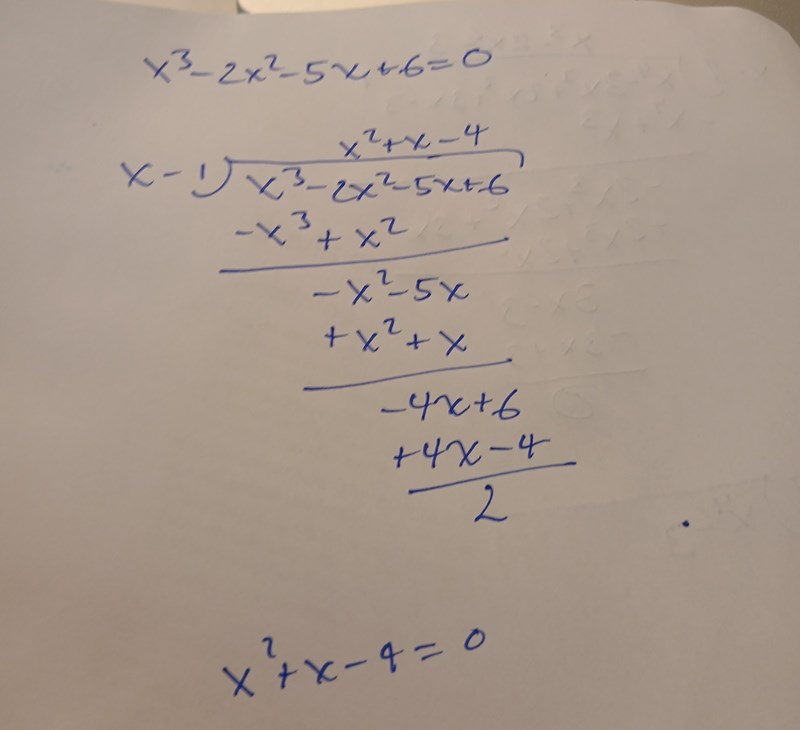 x³-2x²-5x+6=0
x²+x-4
x-1)x³-2x²-5x+6
-x³+x²
-x²-5x
+x²+x
-4x+6
+4x-4
2
x²+x-4=0